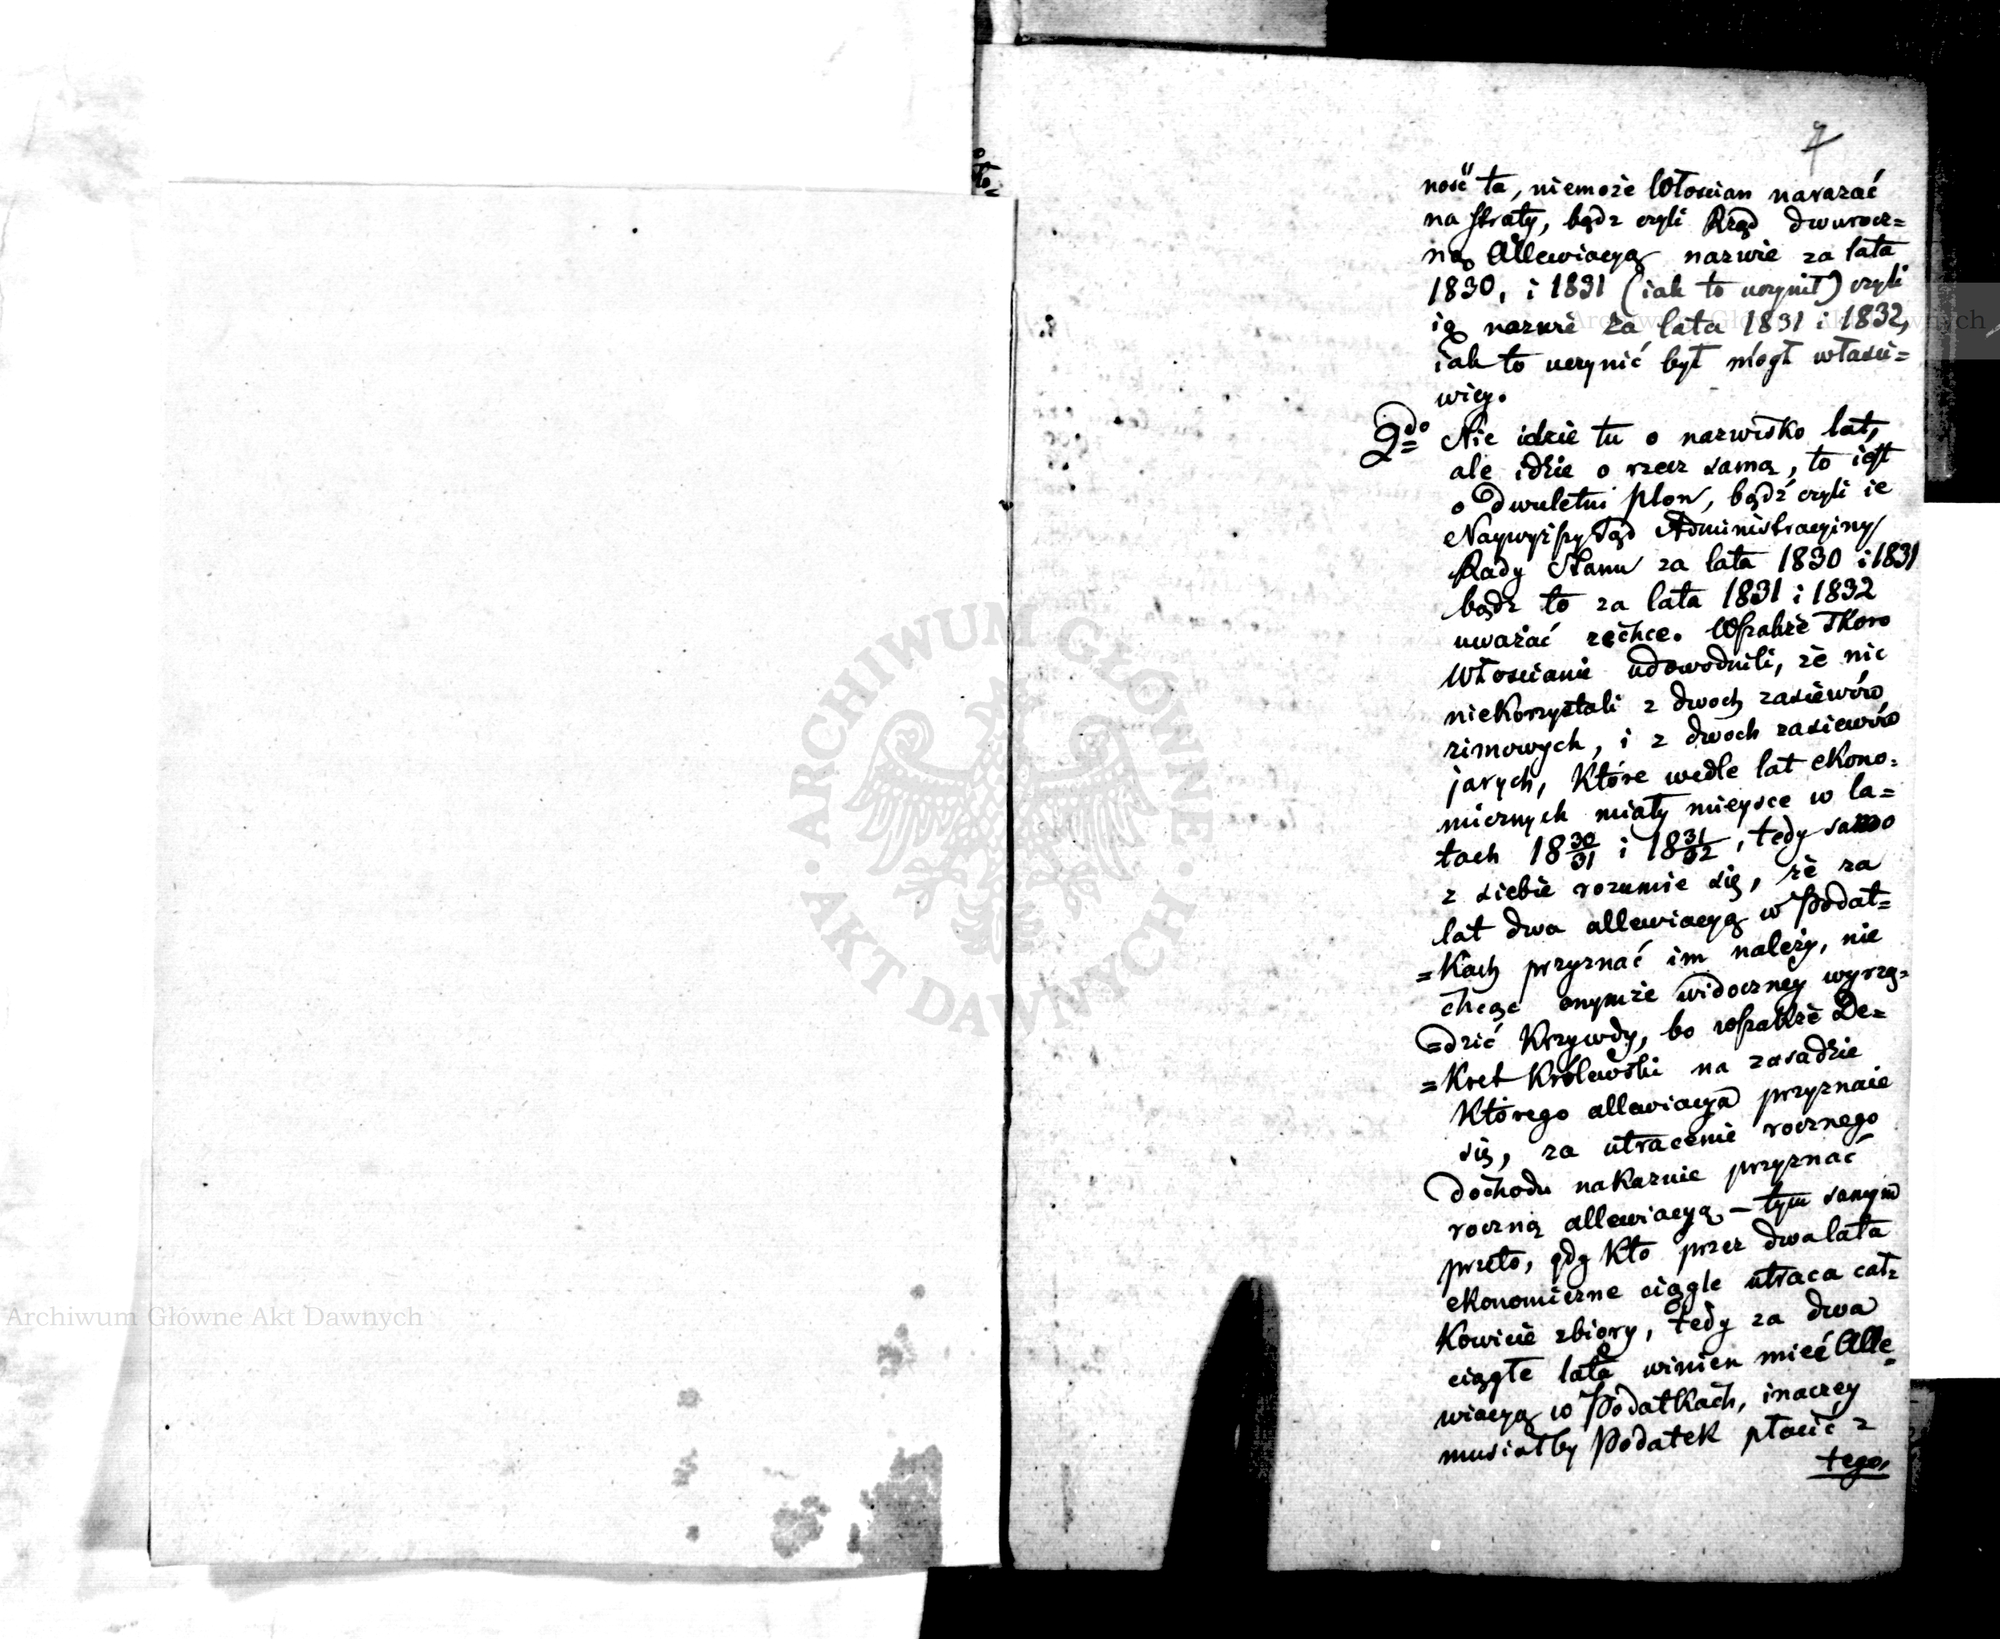 7
ność ta, niemoże Włościan narazać
na straty, bądz czyli Rząd dwurocz=
ną Allewiacyą nazwie za lata
1830, i 1831 (iak to uczynił) czyli
ią nazwie za lata 1831 i 1832,
iak to uczynić był mógł właści=
wiey.
2do Nie idzie tu o nazwisko lat,
ale idzie o rzecz samą, to iest
o dwuletni plon, bądź czyli ie
Naywyższy Sąd Administracyiny
Rady Stanu za lata 1830 i 1831
bądz to za lata 1831 i 1832
uważać zechce. Wszakże skoro
Włościanie udowodnili, że nic
niekorzystali z dwoch zasiewów
zimowych, i z dwoch zasiewów
jarych, które wedle lat ekono=
micznych miały mieysce w la=
tach 1830/31 i 1831/32, tedy samo
z siebie rozumie się, że za
lat dwa allewiacyą w Podat=
=kach przyznać im należy, nie
chcąc onymże widoczney wyrzą=
=dzić krzywdy, bo wszakże De=
=kret Królewski na zasadzie
którego allewiacya przyznaie
się, za utracenie rocznego
dochodu nakazuie przyznać
roczną allewiacyą – tym samym
przeto, gdy kto przez dwa lata
ekonomiczne ciągle utraca cał=
kowicie zbiory, tedy za dwa
ciągłe lata winien mieć Alle=
wiacyą w Podatkach, inaczey
musiałby Podatek płacić z
tego,
Archiwum Główne Akt Dawnych
Archiwum Główne Akt Dawnych
ARCHIWUM GŁÓWNE
AKT DAWNYCH